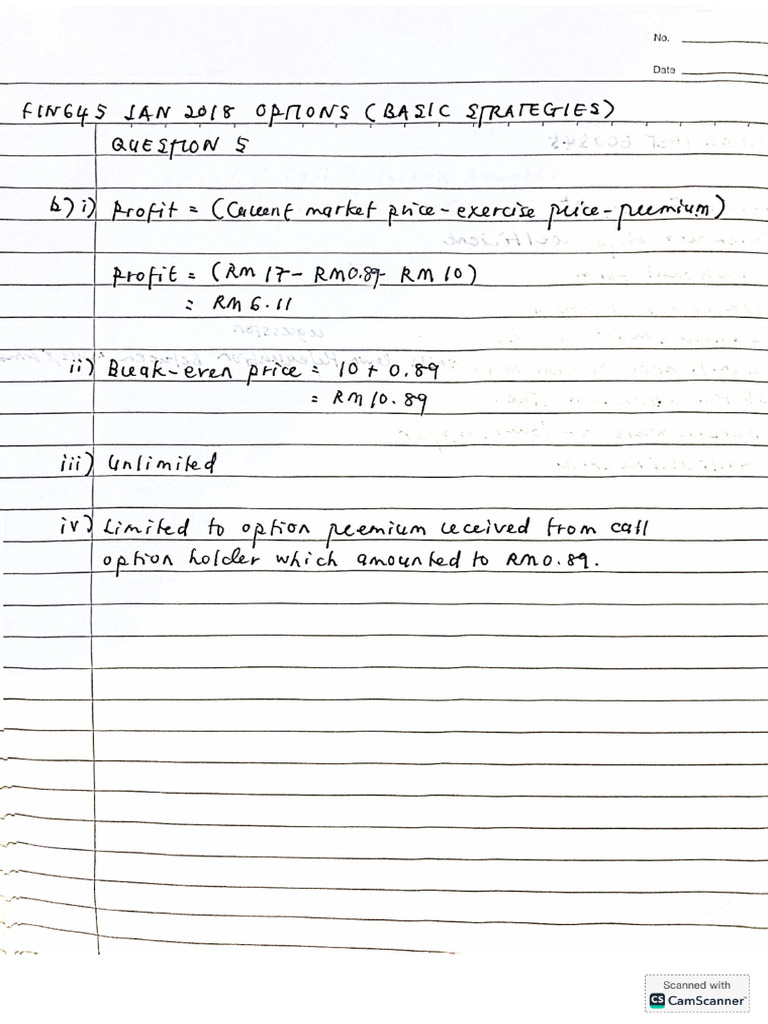 No.
Date
FIN645 JAN 2018 OPTIONS (BASIC STRATEGIES)
QUESTION 5
b) i) Profit = (Current market price - exercise price - premium)
Profit = (RM 17 - RM0.89 - RM 10)
= RM 6.11
ii) Break-even price = 10 + 0.89
= RM 10.89
iii) Unlimited
iv) Limited to option premium received from call
option holder which amounted to RM0.89.
Scanned with
CS CamScanner